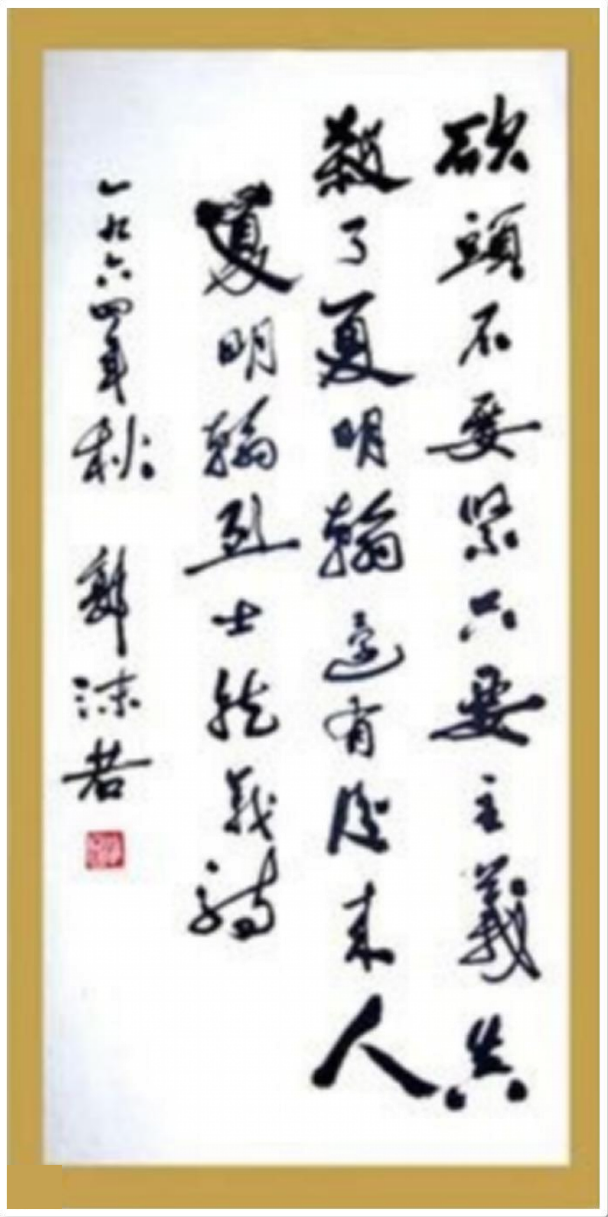 砍頭不要緊只要主義真
殺了夏明翰還有後來人
夏明翰烈士就義詩
一九六四年秋 郭沫若